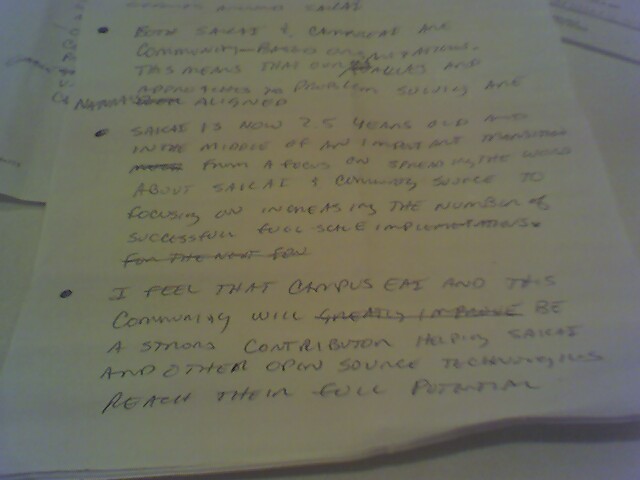 SAKAI
• BOTH SAKAI & CAMPUSEAI ARE
COMMUNITY-BASED ORGANIZATIONS.
THIS MEANS THAT OUR AND
APPROACHES TO PROBLEM SOLVING ARE
ALIGNED
• SAKAI IS NOW 2.5 YEARS OLD AND
IN THE MIDDLE OF AN IMPORTANT TRANSITION
FROM A FOCUS ON SPREADING THE WORD
ABOUT SAKAI & COMMUNITY SOURCE TO
FOCUSING ON INCREASING THE NUMBER OF
SUCCESSFULL FULL SCALE IMPLEMENTATIONS.
FOR THE NEXT FEW
• I FEEL THAT CAMPUS EAI AND THIS
COMMUNITY WILL GREATLY IMPROVE BE
A STRONG CONTRIBUTOR HELPING SAKAI
AND OTHER OPEN SOURCE TECHNOLOGIES
REACH THEIR FULL POTENTIAL